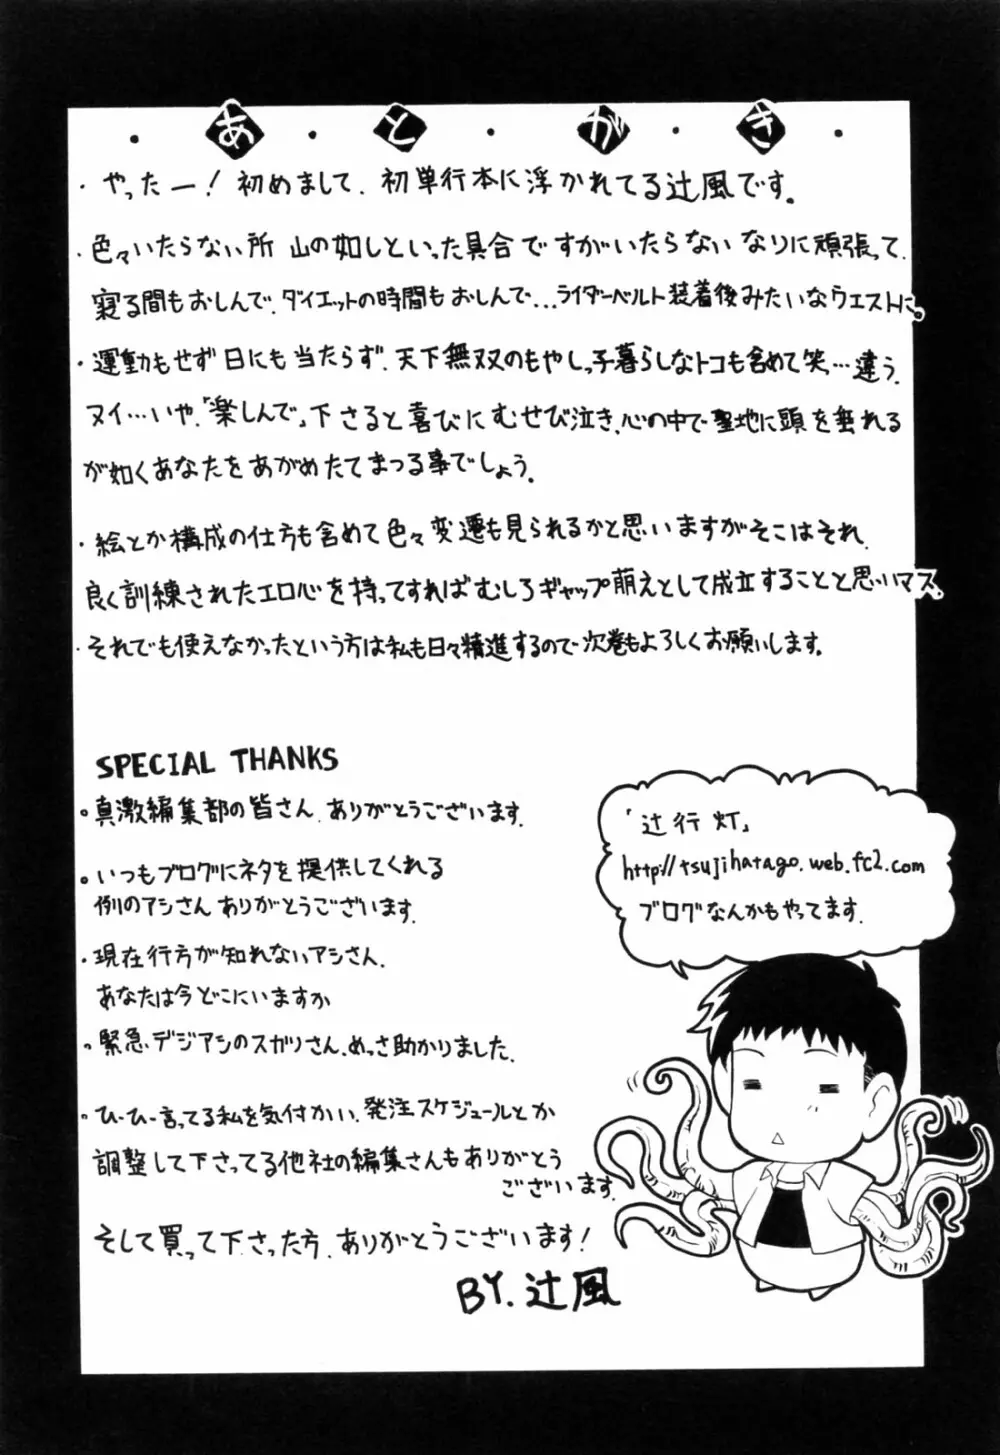 ・あ・と・が・き・
・やったー！初めまして、初単行本に浮かれてる辻風です。
・色々いたらない所 山の如しといった具合ですがいたらないなりに頑張って、
寝る間もおしんで、ダイエットの時間もおしんで…ライダーベルト装着後みたいなウエストに。
・運動もせず日にも当たらず、天下無双のもやしっ子暮らしなトコも含めて笑…違う、
ヌイ…いや、「楽しんで」下さると喜びにむせび泣き、心の中で聖地に頭を垂れる
が如くあなたをあがめたてまつる事でしょう。
・絵とか構成の仕方も含めて色々変遷も見られるかと思いますがそこはそれ、
良く訓練されたエロ心を持ってすればむしろギャップ萌えとして成立することと思いマス。
・それでも使えなかったという方は私も日々精進するので次巻もよろしくお願いします。
SPECIAL THANKS
。真激編集部の皆さん、ありがとうございます。
。いつもブログにネタを提供してくれる
例のアシさんありがとうございます。
・現在行方が知れないアシさん、
あなたは今どこにいますか
。緊急デジアシのスガリさん、めっさ助かりました。
。ひーひー言ってる私を気付かい、発注スケジュールとか
調整して下さってる他社の編集さんもありがとう
ございます。
そして買って下さった方、ありがとうございます！
BY.辻風
「辻行灯」
http://tsujihatago.web.fc2.com
ブログなんかもやってます。